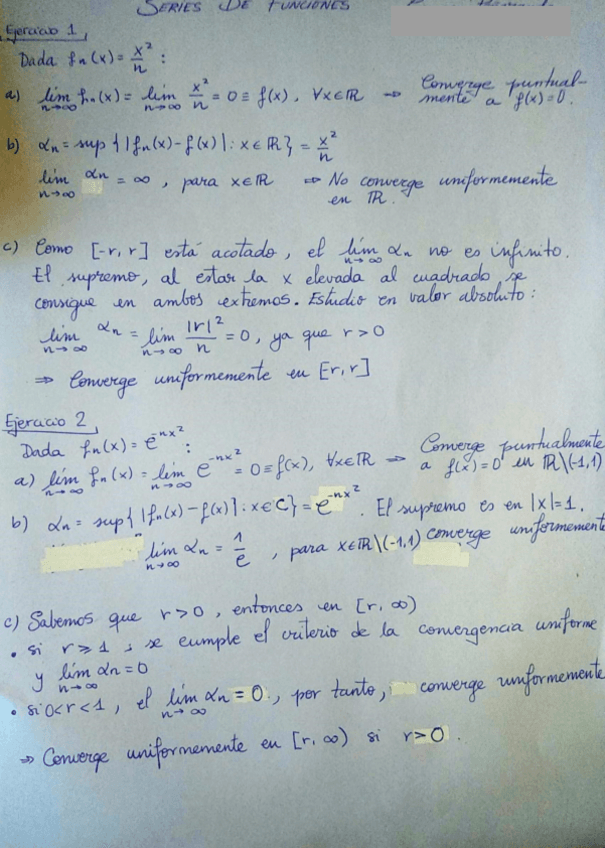 SERIES DE FUNCIONES
Ejercicio 1
Dada fₙ(x) = x²/n :
a) lim n→∞ fₙ(x) = lim n→∞ x²/n = 0 ≡ f(x), ∀x∈ℝ ⇒ Converge puntual-
mente a f(x)=0.
b) αₙ = sup{|fₙ(x)-f(x)| : x∈ℝ} = x²/n
lim n→∞ αₙ = ∞, para x∈ℝ ⇒ No converge uniformemente
en ℝ.
c) Como [-r,r] está acotado, el lim n→∞ αₙ no es infinito.
El supremo, al estar la x elevada al cuadrado se
consigue en ambos extremos. Estudio en valor absoluto:
lim n→∞ αₙ = lim n→∞ |r|²/n = 0, ya que r>0
⇒ Converge uniformemente en [r,r]
Ejercicio 2
Dada fₙ(x) = e^(-nx²) :
a) lim n→∞ fₙ(x) = lim n→∞ e^(-nx²) = 0 ≡ f(x), ∀x∈ℝ ⇒ Converge puntualmente
a f(x)=0 en ℝ\(-1,1)
b) αₙ = sup{|fₙ(x)-f(x)| : x∈C} = e^(-nx²). El supremo es en |x|=1.
lim n→∞ αₙ = 1/e, para x∈ℝ\(-1,1) converge uniformemente
c) Sabemos que r>0, entonces en [r,∞)
• si r≥1, se cumple el criterio de la convergencia uniforme
y lim n→∞ αₙ=0
• si 0<r<1, el lim n→∞ αₙ = 0, por tanto, converge uniformemente
⇒ Converge uniformemente en [r,∞) si r>0.